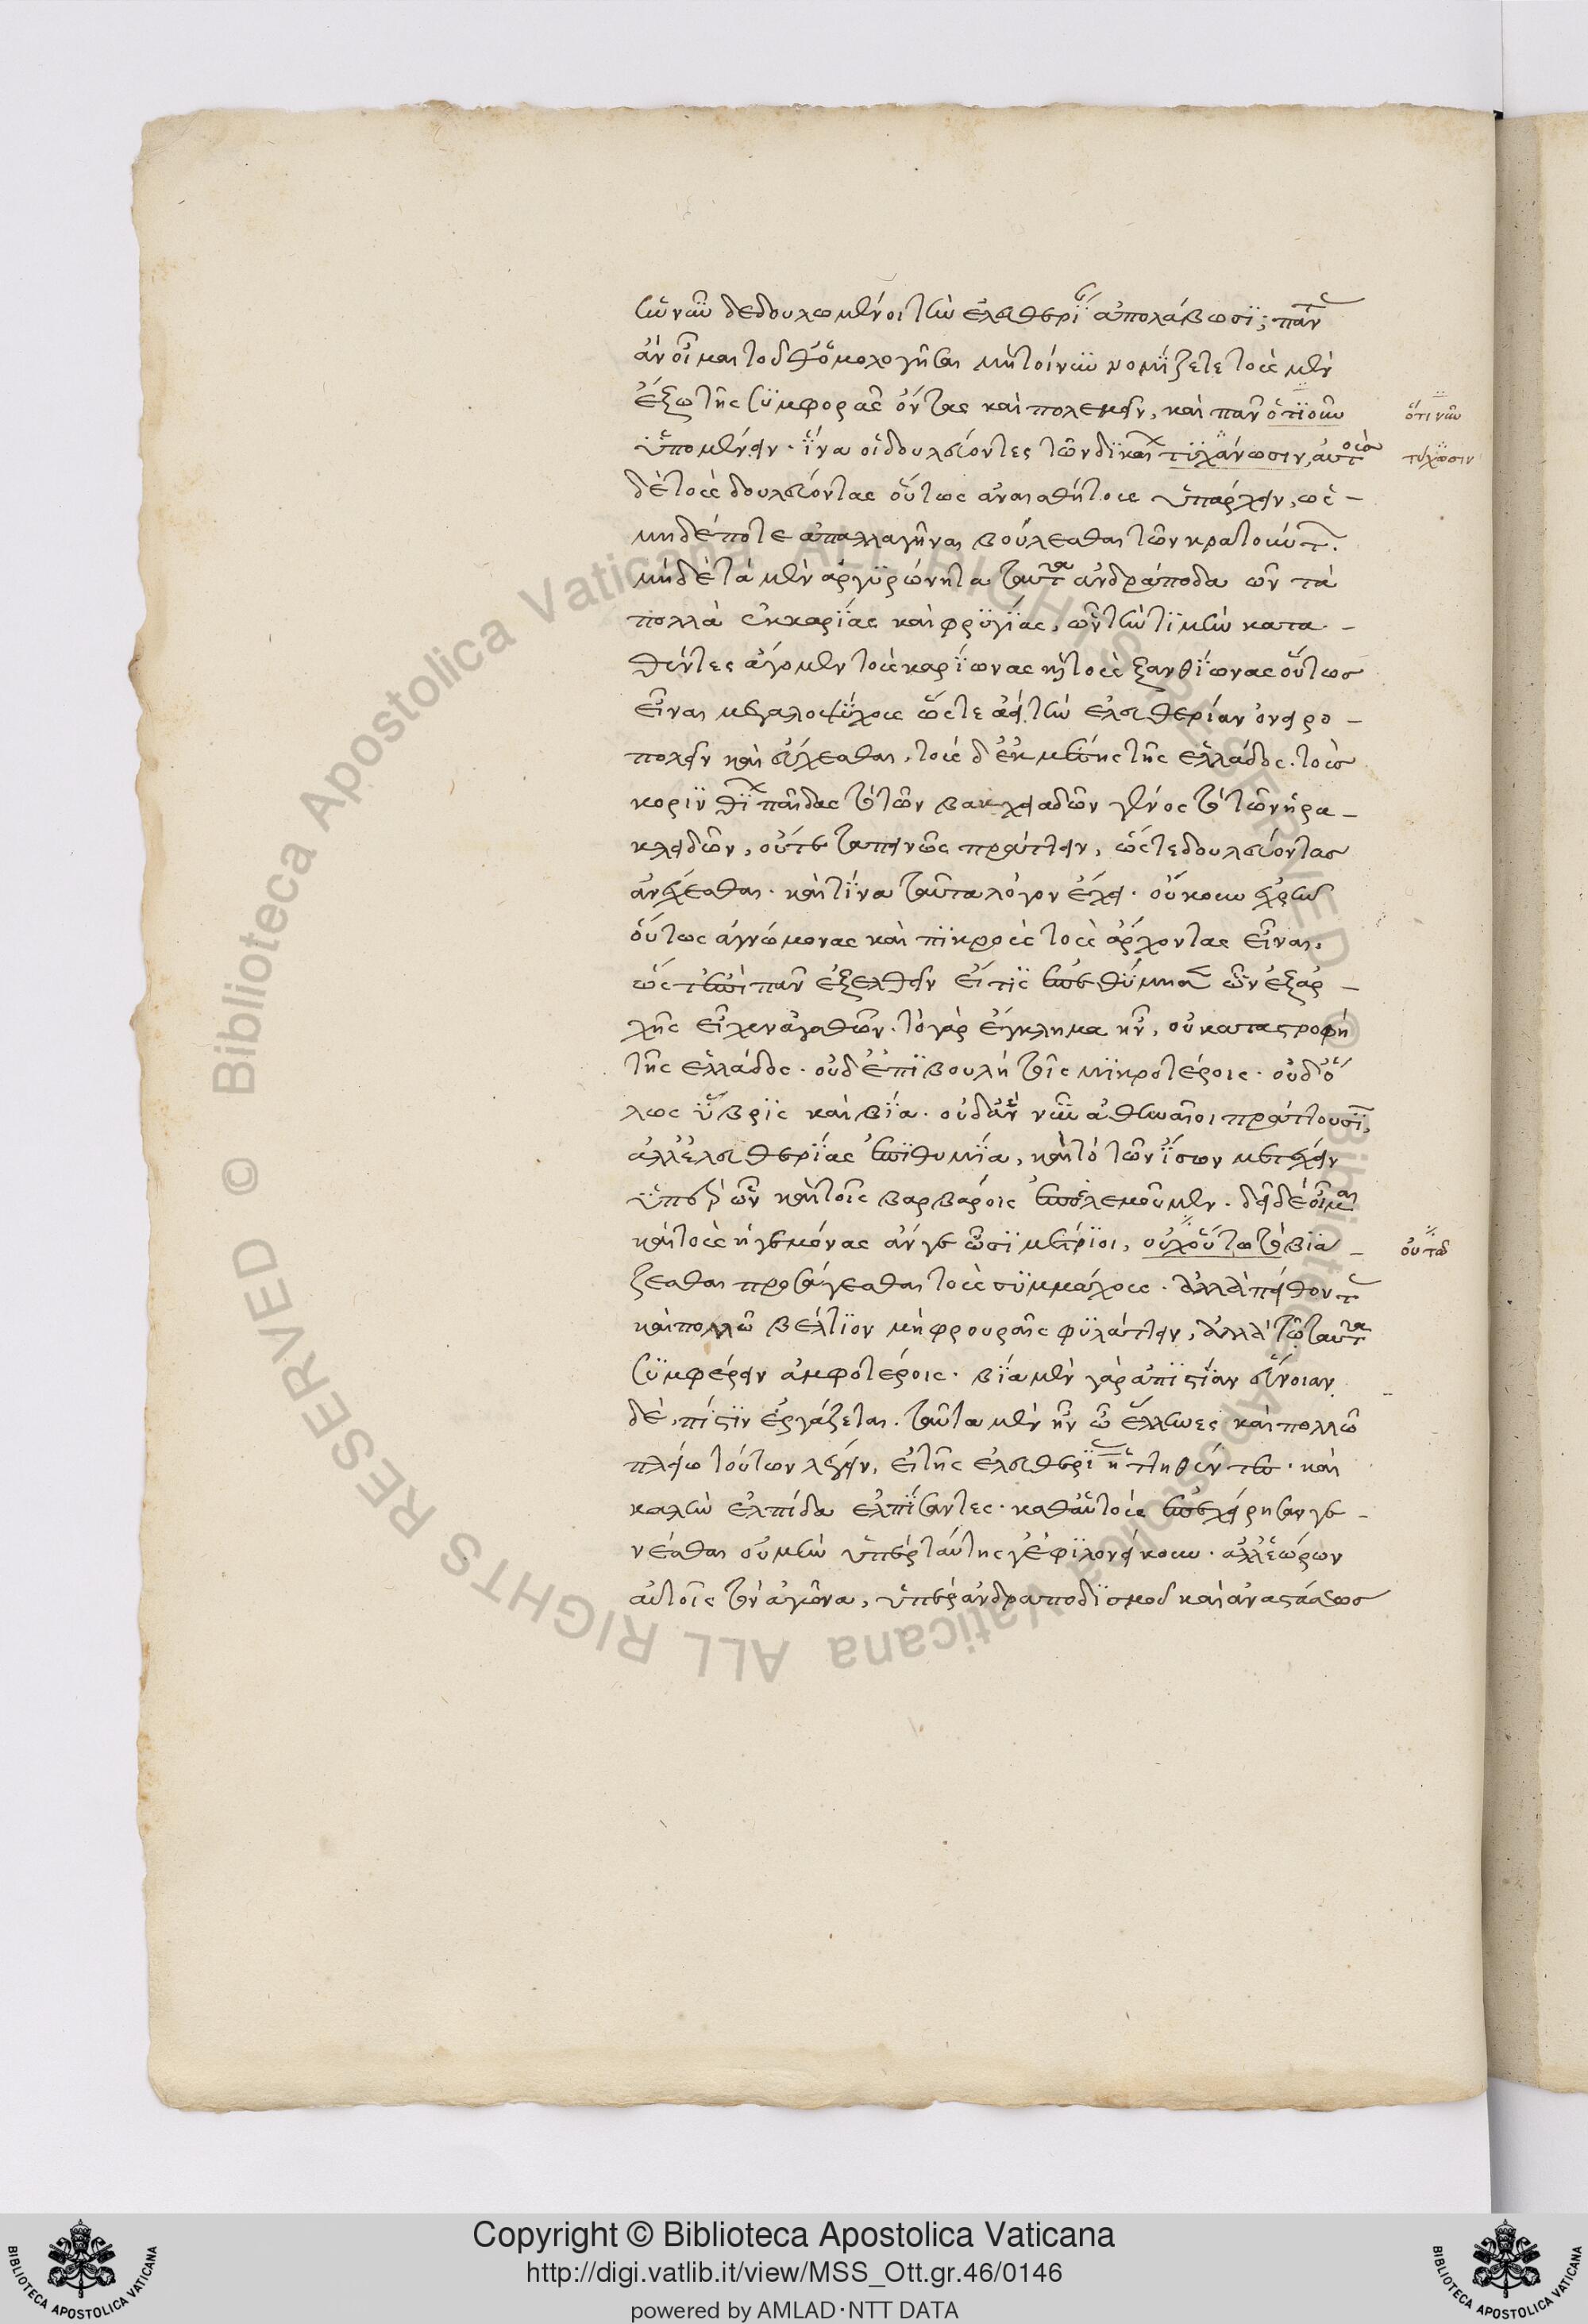 οἱ νῦν δεδουλωμένοι τὴν ἐλευθερίαν ἀπολάβωσϊ; πάντες
ἂν οἶμαι τοῦθ ὁμολογῆσαι μὴ τοίνυν νομίζετε τοὺς μὲν
ἔξω τῆς συμφορᾶς ὄντας καὶ πολεμεῖν, καὶ πᾶν ὁτιοῦν
ὑπομένειν. ἵνα οἱ δουλεύοντες τῶν δικαίων τυγχάνωσιν, αὐτοὺς
δὲ τοὺς δουλεύοντας οὕτως ἀναισθήτους ὑπάρχειν, ὡς
μηδέποτε ἀπαλλαγῆναι βούλεσθαι τῶν κρατούντων.
μὴ δὲ τὰ μὲν ἀργυρώνητα ταῦτα ἀνδράποδα ὧν τὰ
πολλὰ ἐκ καρίας καὶ φρυγίας, ὧν τὴν τιμὴν κατα-
θέντες ἄγομεν τοὺς καρίωνας καὶ τοὺς ξανθίωνας οὕτως
εἶναι μεγαλοψύχους ὥστε ἀεὶ τὴν ἐλευθερίαν ὀνειρο-
πολεῖν καὶ εὔχεσθαι, τοὺς δ ἐκ μέσης τῆς ἑλλάδος. τοὺς
κορινθίων παῖδας τὸ τῶν βακχιαδῶν γένος τὸ τῶν ἡρα-
κλειδῶν, οὕτω ταπεινῶς πράττειν, ὥστε δουλεύοντας
ἀνέχεσθαι. καὶ τίνα ταῦτα λόγον ἔχει. οὔκουν
οὕτως ἀγνώμονας καὶ πικροὺς τοὺς ἄρχοντας εἶναι,
ὥς ἐπὶ πᾶν ἐξελθεῖν εἴ τις ἐπεθύμησεν ὧν ἐξ ἀρ-
χῆς εἶχεν ἀγαθῶν. τὸ γὰρ ἔγκλημα ἦν, οὐ καταστροφὴ
τῆς ἑλλάδος. οὐδ ἐπιβουλὴ τοῖς μικροτέροις. οὐδ ὅ
λως ὕβρις καὶ βία. οὐδ ἃ νῦν ἀθηναῖοι πράττουσϊ,
ἀλλ ἐλευθερίας ἐπιθυμία, καὶ τὸ τῶν ἴσων μετέχειν
ὑπὲρ ὧν καὶ τοῖς βαρβάροις ἐπολεμοῦμεν. δεῖ δὲ οἶμαι
καὶ τοὺς ἡγεμόνας ἄν γε ὦσι μέτριοι, οὐχ οὕτω τὸ βιά-
ζεσθαι προσάγεσθαι τοὺς συμμάχους. ἀλλὰ πείθοντας
καὶ πολλῷ βέλτιον μὴ φρουραῖς φυλάττειν, ἀλλὰ τῷ ταῦτα
συμφέρειν ἀμφοτέροις. βία μὲν γὰρ ἀπιστίαν εὔνοιαν
δὲ, πίστιν ἐργάζεται. ταῦτα μὲν ἦν ὦ ἕλληνες καὶ πολλῷ
πλείω τούτων λέγειν, εἰ τῆς ἐλευθερίας ἡττηθέντες. καὶ
καλὴν ἐλπίδα ἐλπίσαντες. καθ αὑτοὺς ἐπεχείρησαν γε-
νέσθαι οὐ μὴν ὑπὲρ ταύτης γε ἐφιλονείκουν. ἀλλ ἑώρων
αὐτοῖς τὸν ἀγῶνα, ὑπὲρ ἀνδραποδισμοῦ καὶ ἀναστάσεως
ὅτι νῦν
τύχωσιν
οὐ τῷ
Copyright © Biblioteca Apostolica Vaticana
http://digi.vatlib.it/view/MSS_Ott.gr.46/0146
powered by AMLAD·NTT DATA
BIBLIOTECA APOSTOLICA VATICANA
BIBLIOTECA APOSTOLICA VATICANA
© Biblioteca Apostolica Vaticana ALL RIGHTS RESERVED © Biblioteca Apostolica Vaticana ALL RIGHTS RESERVED